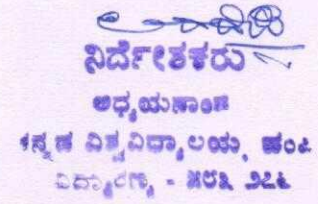 ನಿರ್ದೇಶಕರು
ಅಧ್ಯಯನಾಂಗ
ಕನ್ನಡ ವಿಶ್ವವಿದ್ಯಾಲಯ, ಹಂಪಿ
ವಿದ್ಯಾರಣ್ಯ - ೫೮೩ ೨೭೬